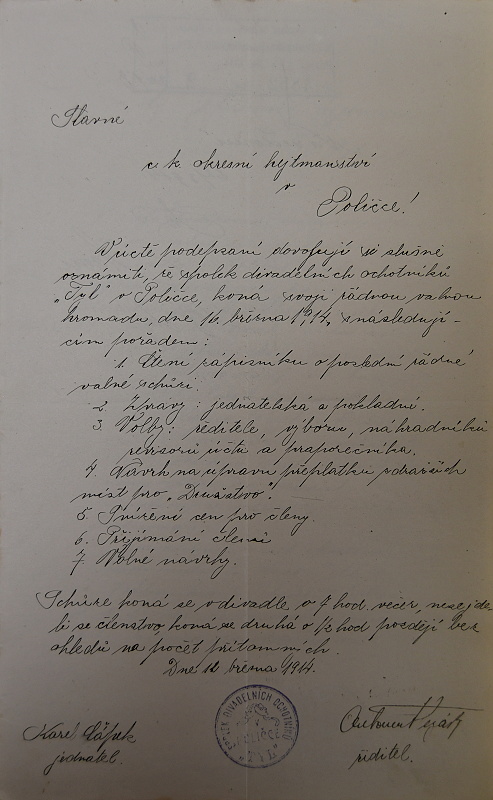 Slavné
c. k. okresní hejtmanství
v
Poličce!
V úctě podepsaní dovolují si slušně
oznámiti, že spolek divadelních ochotníků
„Tyl" v Poličce, koná svoji řádnou valnou
hromadu, dne 16. března 1914, s následují-
cím pořadem:
1. Čtení zápisníku o poslední řádné
valné schůzi.
2. Zprávy: jednatelská a pokladní.
3. Volby: ředitele, výboru, náhradníků
revisorů účtů a praporečníka.
4. Návrh na úpravu příplatků dražších
míst pro „Družstvo".
5. Snížení cen pro členy.
6. Přijímání členů
7. Volné návrhy.
Schůze koná se v divadle o 7 hod. večer, nesejde-
li se členstvo, koná se druhá o ½ hod později bez
ohledů na počet přítomných.
Dne 12. března 1914.
SPOLEK DIVADELNÍCH OCHOTNÍKŮ
V POLIČCE
„TYL"
Karel
jednatel.
Antonín
ředitel.